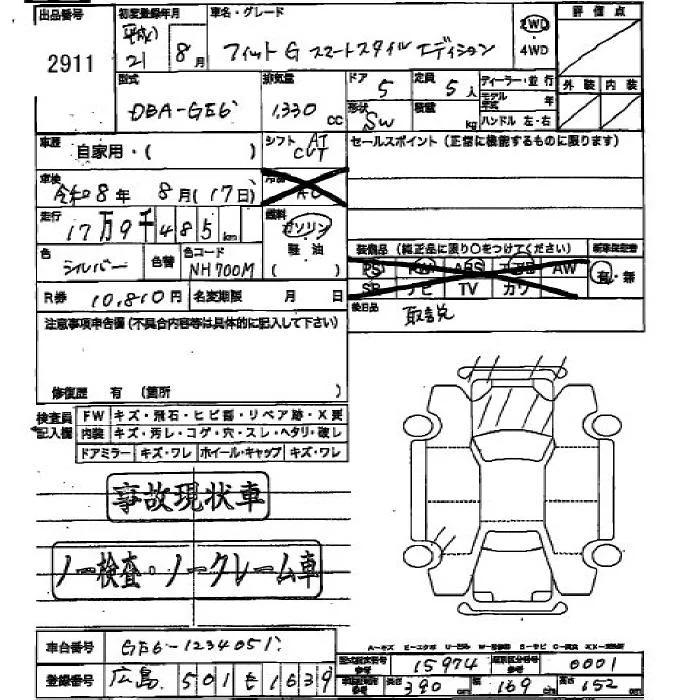 出品番号 2911
初度登録年月 平成 21 8月
車名・グレード フィット G スマートスタイル エディション
2WD 4WD
評価点
外装 内装
型式 DBA-GE6
排気量 1,330 cc
ドア 5
定員 5人
形状 SW
積載 kg
ディーラー・並行
モデル年式 年
ハンドル 左・右
車歴 自家用・( )
シフト AT CVT
セールスポイント(正常に機能するものに限ります)
車検 令和8年 8月(17日)
冷房 AC
走行 17万9千485km
燃料 ガソリン 軽油 ( )
色 シルバー
色替
色コード NH700M
装備品(純正品に限り○をつけてください)
PS PW ABS AW
SR ナビ TV カワ
有・無
R券 10,810円
名変期限 月 日
後日品 取説
注意事項申告欄(不具合内容等は具体的に記入して下さい)
修復歴 有(箇所 )
検査員記入欄
FW キズ・飛石・ヒビ割・リペア跡・X要
内装 キズ・汚レ・コゲ・穴・スレ・ヘタリ・破レ
ドアミラー キズ・ワレ ホイール・キャップ キズ・ワレ
事故現状車
ノー検査・ノークレーム車
車台番号 GE6-1234051
登録番号 広島 501 1639
型式指定番号 15974
類別区分番号 0001
長さ 390 cm 幅 169 cm 高さ 152 cm